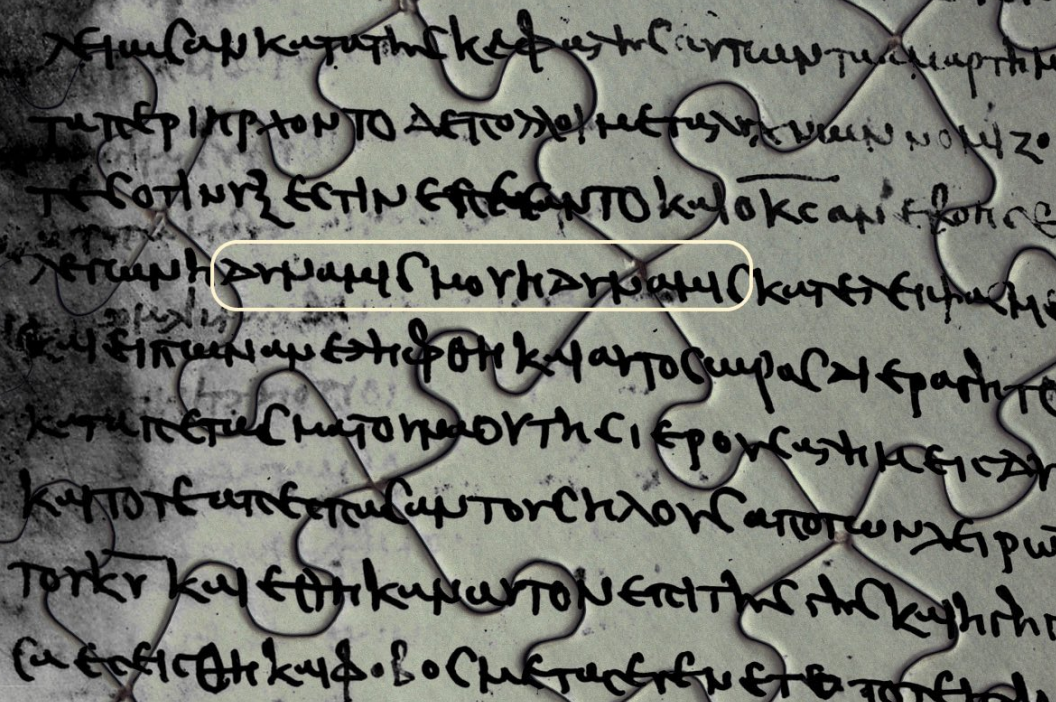 λειωσαν κατα της κεφαλης αυτων τα αμαρτημ
τα περιηρχοντο δε πολλοι μετα λυχνων νομιζο
τες οτι νυξ εστιν επεσαντο και ο κς ανεβοησε
λεγων η δυναμις μου η δυναμις κατελειψας με
και ειπων ανεληφθη και αυτος ωρας διεραγη το
καταπετασμα του ναου της ιερουσαλημ εις δυ
και τοτε απεσπασαν τους ηλους απο των χειρω
του κυ και εθηκαν αυτον επι της γης και η γη
σα εσεισθη και φοβος μεγας εγενετο τοτε